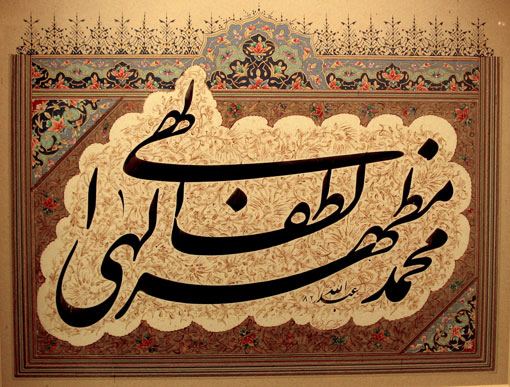 محمد مظهر لطف الهی
عبدالله ۸۲